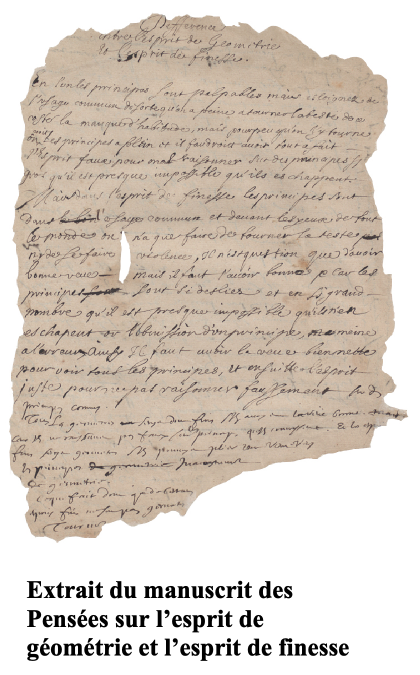 Difference
entre l'esprit de Geometrie
et l'esprit de finesse.
En l'un les principes sont palpables mais eloignez de
l'usage commun de sorte qu'on a peine a tourner la teste de ce
costé la manque d'habitude, mais pour peu qu'on s'y tourne
on les principes a plein et il faudroit avoir tout a fait
l'esprit faux pour mal raisonner sur des principes si
gros qu'il est presque impossible qu'ils eschappent.
Mais dans l'esprit de finesse les principes sont
dans l'usage commun et devant les yeux de tout
le monde on n'a que faire de tourner la teste
ny de se faire violence, Il n'est question que d'avoir
bonne veue mais il faut l'avoir bonne Car les
principes sont si desliez et en si grand
nombre qu'il est presque impossible qu'il n'en
eschapent or l'obmission d'un principe, meine
a l'erreur ainsy Il faut avoir la veue bien nette
pour voir tous les principes, et ensuite l'esprit
juste pour ne pas raisonner faussement sur des
principes connus.
Tous les geometres
fins s'ils
les principes de geometrie
de geometrie.
Extrait du manuscrit des
Pensées sur l'esprit de
géométrie et l'esprit de finesse